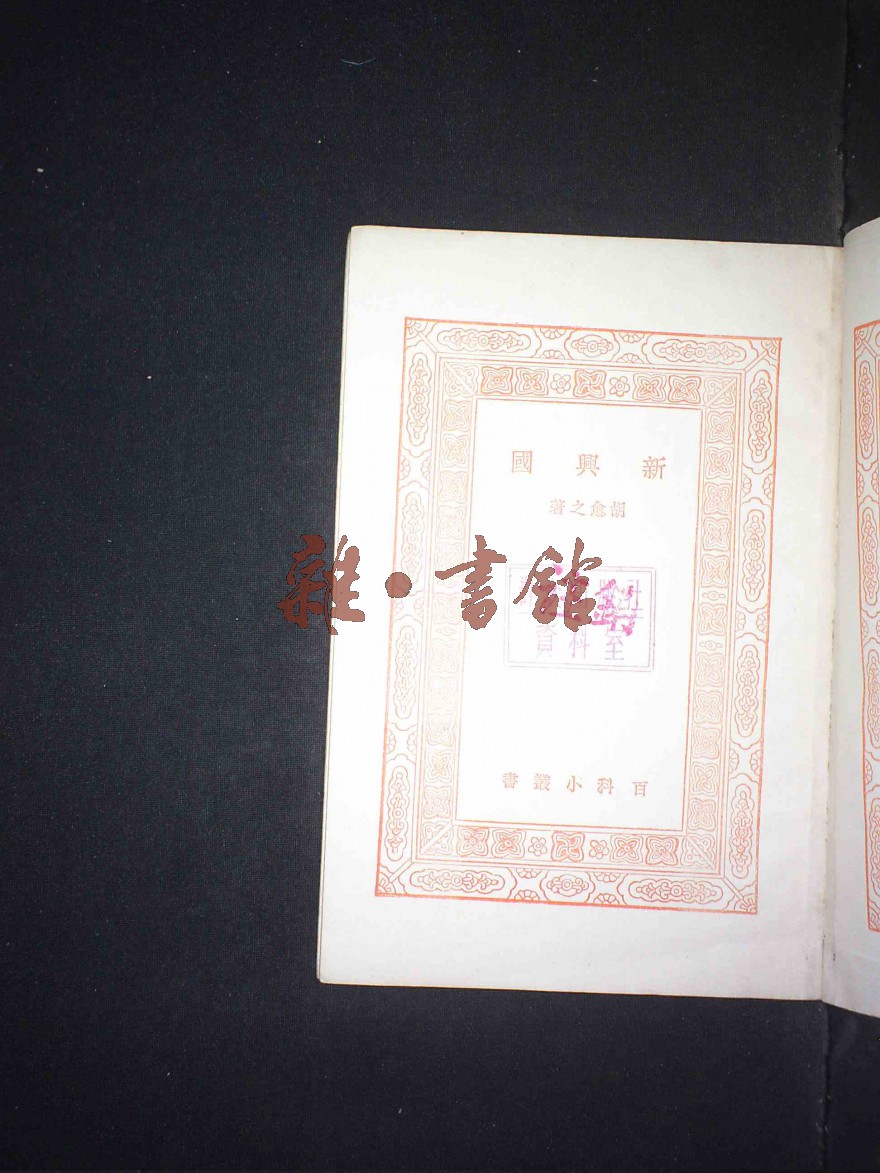 新興國
胡愈之著
雜·書館
資料室
百科小叢書